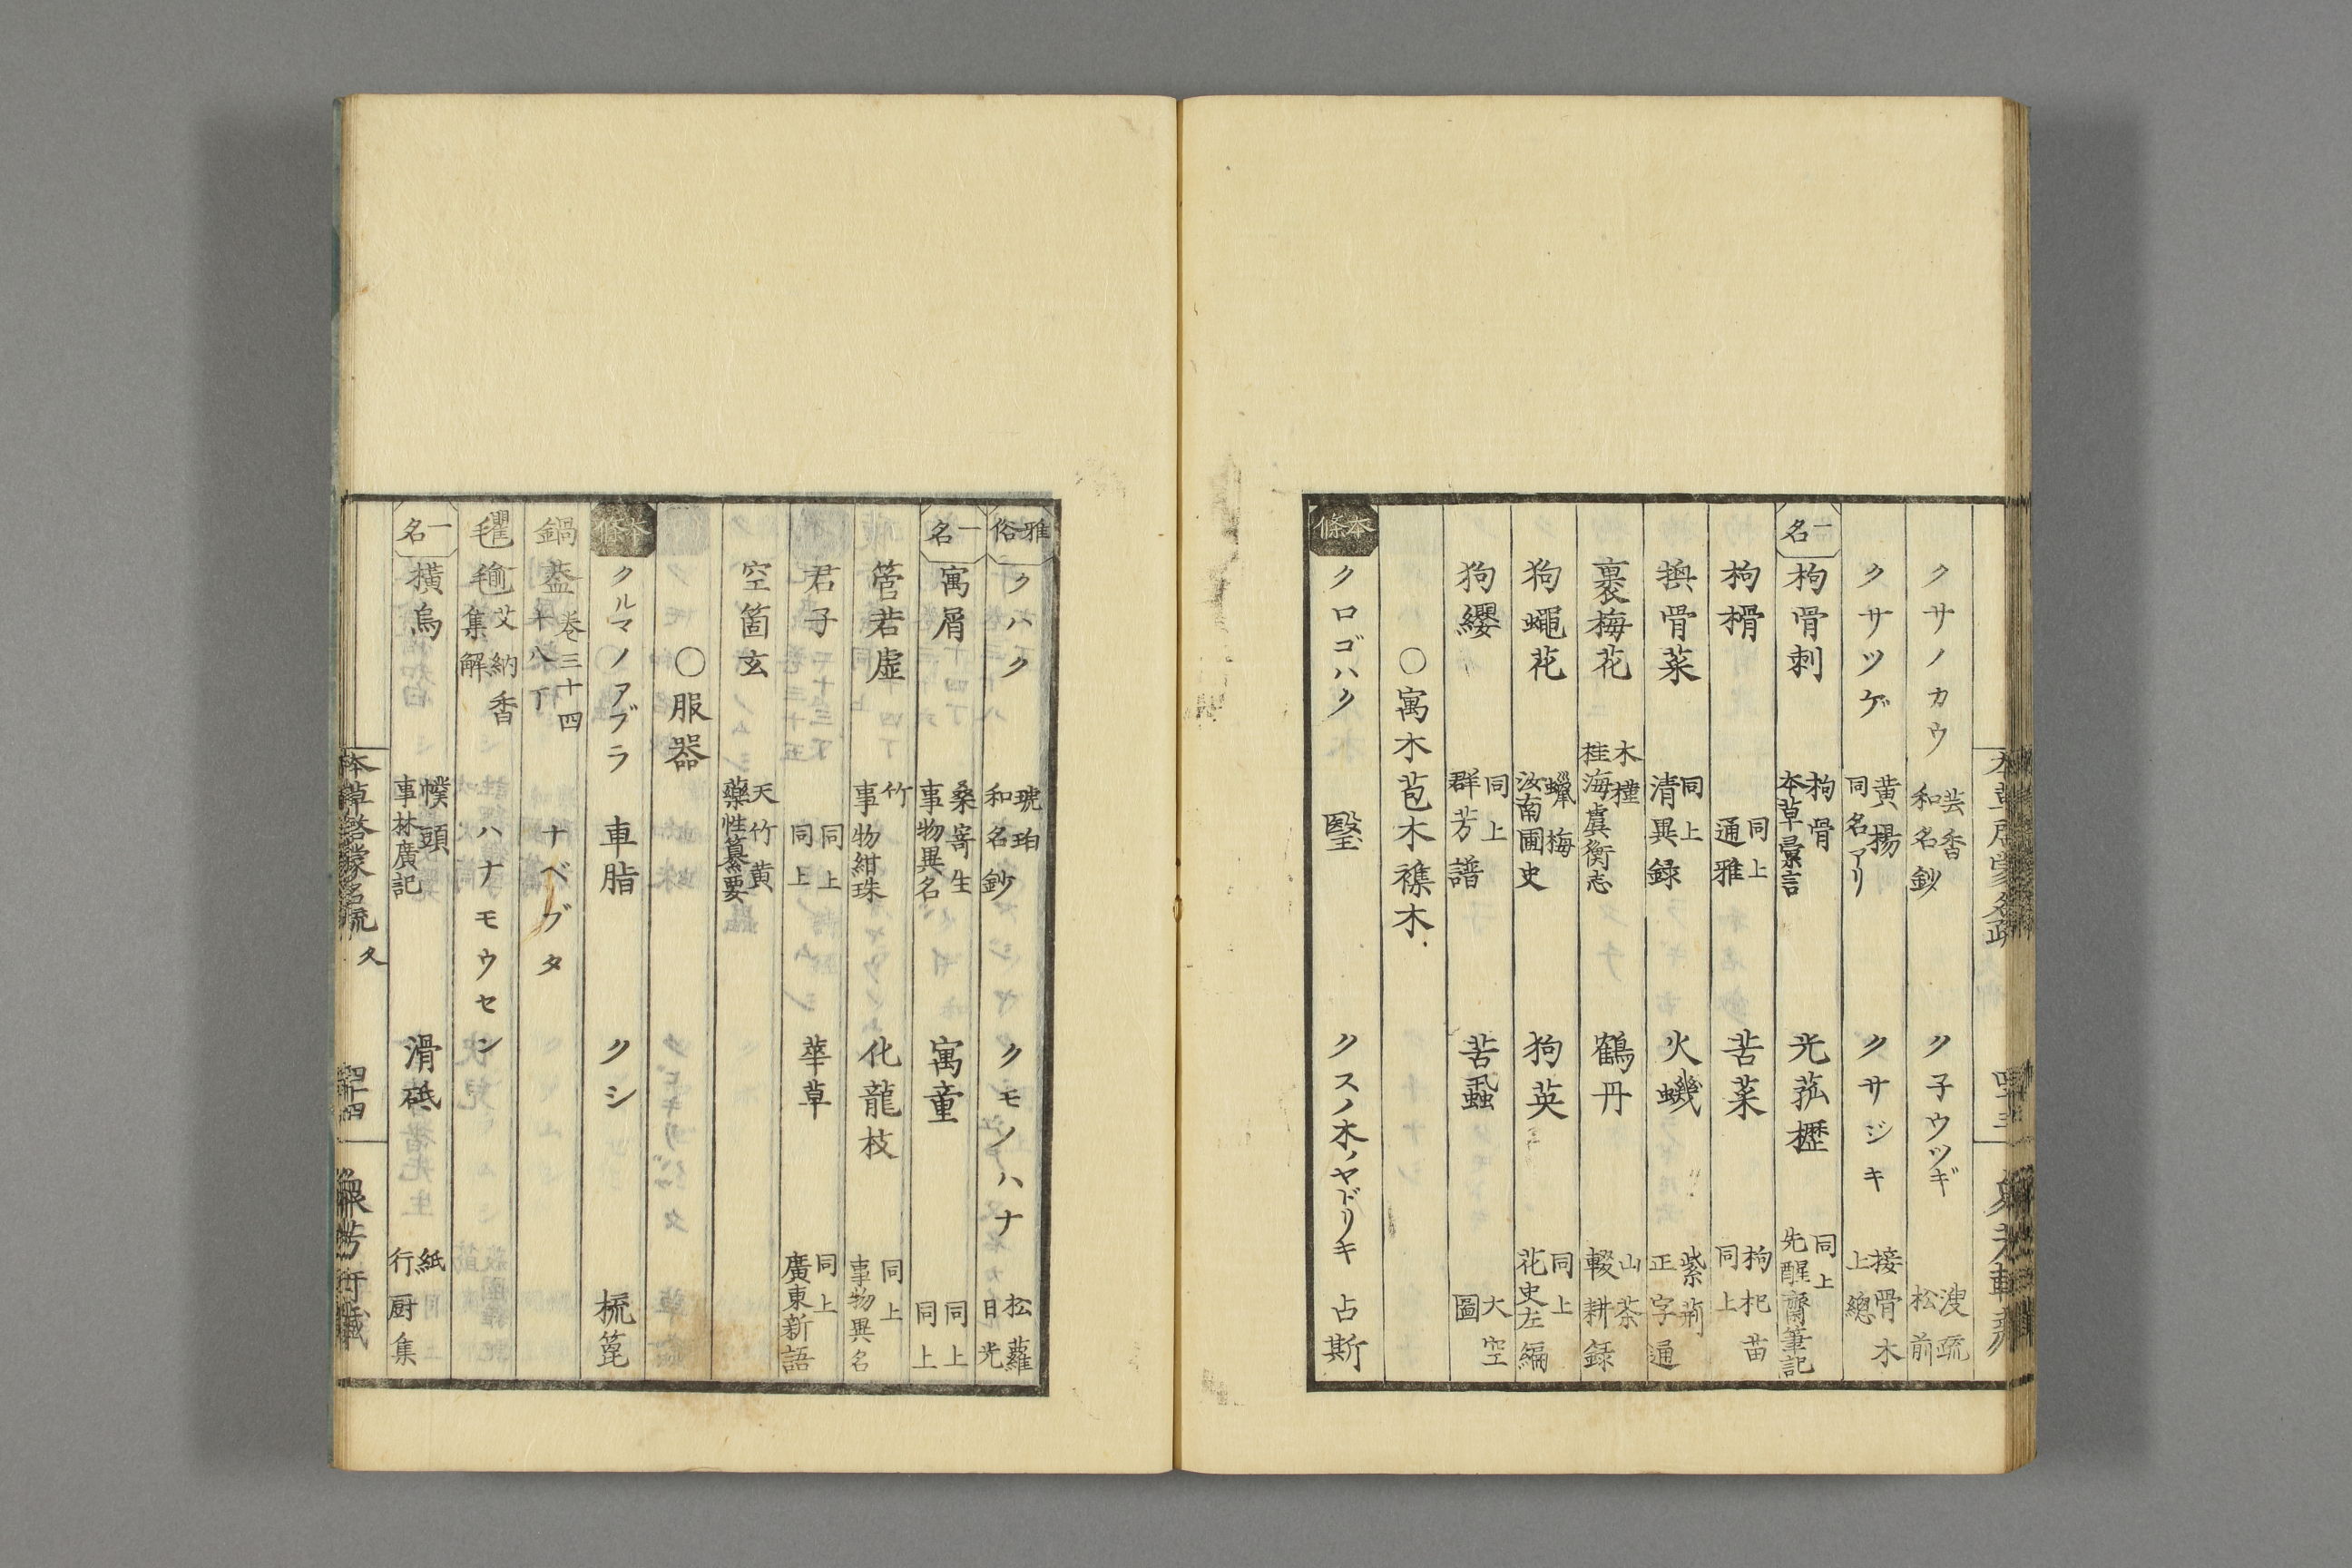 クサノカウ 芸香 和名鈔 ク子ウツギ 溲疏 松前
クサツゲ 黄楊 同名アリ クサジキ 接骨木 上總
一名 枸骨刺 枸骨 本草彙言 光菰櫪 同上 先醒齋筆記
枸榾 同上 通雅 苦菜 枸杞苗 同上
換骨菜 同上 清異録 火蟣 紫荊 正字通
裹梅花 木槿 桂海虞衡志 鶴丹 山茶 輟耕録
狗蠅花 蠟梅 汝南圃史 狗英 同上 花史左編
狗纓 同上 群芳譜 苦蝨 大空 圖
〇寓木苞木襍木
本條 クロゴハク 瑿 クスノ木ノヤドリキ 占斯
雅俗 クハク 琥珀 和名鈔 クモノハナ 松蘿 日光
一名 寓屑 桑寄生 事物異名 寓童 同上 同上
筥若虛 竹 事物紺珠 化龍枝 同上 事物異名
君子 同上 同上 華草 同上 廣東新語
空箇玄 天竹黄 藥性纂要
〇服器
本條 クルマノアブラ 車脂 クシ 梳篦
鍋葢 卷三十四 十八丁 ナベブタ
氍毹 艾納香 集解 ハナモウセン
一名 横烏 幞頭 事林廣記 滑砥 紙 行厨集
本草啓蒙名疏 ク 四十四